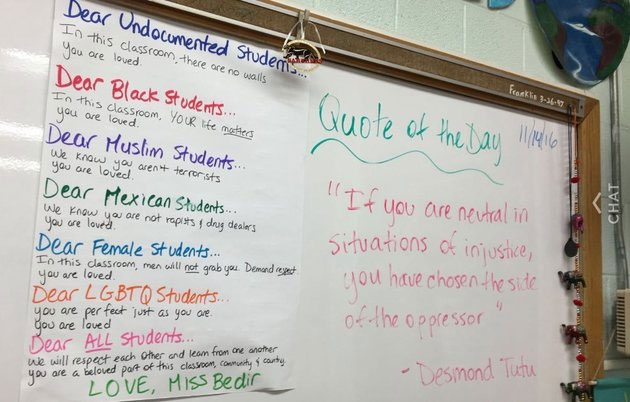 Dear Undocumented Students...
In this classroom, there are no walls
you are loved.
Dear Black Students...
In this classroom, YOUR life matters
you are loved.
Dear Muslim Students...
We know you aren't terrorists
you are loved.
Dear Mexican Students...
We know you are not rapists & drug dealers
you are loved.
Dear Female Students...
In this classroom, men will not grab you. Demand respect.
you are loved.
Dear LGBTQ Students...
you are perfect just as you are.
you are loved
Dear ALL students...
We will respect each other and learn from one another
you are a beloved part of this classroom, community & country.
LOVE, MISS Bedir
Franklin 3-26-97
Quote of the Day
11/14/16
"If you are neutral in
situations of injustice,
you have chosen the side
of the oppressor"
- Desmond Tutu
CHAT